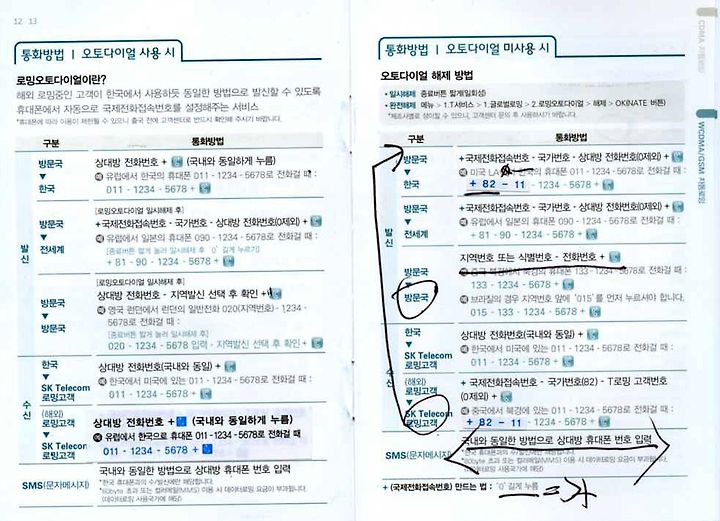 12 13
통화방법 | 오토다이얼 사용 시
로밍오토다이얼이란?
해외 로밍중인 고객이 한국에서 사용하듯 동일한 방법으로 발신할 수 있도록
휴대폰에서 자동으로 국제전화접속번호를 설정해주는 서비스
*휴대폰에 따라 이용이 제한될 수 있으니 출국 전에 고객센터로 반드시 확인해 주시기 바랍니다.
구분 통화방법
발신
방문국 ▼ 한국
상대방 전화번호 + (국내와 동일하게 누름)
예 유럽에서 한국의 휴대폰 011 - 1234 - 5678로 전화걸 때 :
011 - 1234 - 5678 +
방문국 ▼ 전세계
[로밍오토다이얼 일시해제 후]
+국제전화접속번호 - 국가번호 - 상대방 전화번호(0제외) +
예 유럽에서 일본의 휴대폰 090 - 1234 - 5678로 전화걸 때 :
[종료버튼 짧게 눌러 일시해제 후 '0' 길게 누르기]
+ 81 - 90 - 1234 - 5678 +
방문국 ▼ 방문국
[로밍오토다이얼 일시해제 후]
상대방 전화번호 - 지역발신 선택 후 확인 +
예 영국 런던에서 런던의 일반전화 020(지역번호) - 1234 -
5678로 전화걸 때 :
[종료버튼 짧게 눌러 일시해제 후]
020 - 1234 - 5678 입력 - 지역발신 선택 후 확인 +
수신
한국 ▼ SK Telecom 로밍고객
상대방 전화번호(국내와 동일) +
예 한국에서 미국에 있는 011 - 1234 - 5678로 전화걸 때 :
011 - 1234 - 5678 +
(해외) 로밍고객 ▼ SK Telecom 로밍고객
상대방 전화번호 + (국내와 동일하게 누름)
예 유럽에서 한국으로 휴대폰 011-1234-5678로 전화걸 때
011 - 1234 - 5678 +
SMS(문자메시지)
국내와 동일한 방법으로 상대방 휴대폰 번호 입력
*한국 휴대폰과의 수/발신에만 해당합니다.
*80byte 초과 또는 컬러메일(MMS) 이용 시 데이터로밍 요금이 부과됩니다.
(데이터로밍 사용국가에 해당)
통화방법 | 오토다이얼 미사용 시
오토다이얼 해제 방법
• 일시해제 종료버튼 짧게(일회성)
• 완전해제 메뉴 > 1.T서비스 > 1.글로벌로밍 > 2.로밍오토다이얼 > 해제 > OK(NATE 버튼)
*제조사별로 상이할 수 있으니, 고객센터 문의 후 사용하시기 바랍니다.
구분 통화방법
발신
방문국 ▼ 한국
+국제전화접속번호 - 국가번호 - 상대방 전화번호(0제외) +
예 미국 LA에서 한국의 휴대폰 011 - 1234 - 5678로 전화걸 때 :
+ 82 - 11 - 1234 - 5678 +
방문국 ▼ 전세계
+국제전화접속번호 - 국가번호 - 상대방 전화번호(0제외) +
예 유럽에서 일본의 휴대폰 090 - 1234 - 5678로 전화걸 때 :
+ 81 - 90 - 1234 - 5678 +
방문국 ▼ 방문국
지역번호 또는 식별번호 - 전화번호 +
예 중국 북경에서 북경의 휴대폰 133 - 1234 - 5678로 전화걸 때 :
133 - 1234 - 5678 +
예 브라질의 경우 지역번호 앞에 '015'를 먼저 누르셔야 합니다.
015 - 133 - 1234 - 5678 +
수신
한국 ▼ SK Telecom 로밍고객
상대방 전화번호(국내와 동일) +
예 한국에서 미국에 있는 011 - 1234 - 5678로 전화걸 때 :
011 - 1234 - 5678 +
(해외) 로밍고객 ▼ SK Telecom 로밍고객
+ 국제전화접속번호 - 국가번호(82) - T로밍 고객번호
(0제외) +
예 중국에서 북경에 있는 011 - 1234 - 5678로 전화걸 때 :
+ 82 - 11 - 1234 - 5678 +
SMS(문자메시지)
국내와 동일한 방법으로 상대방 휴대폰 번호 입력
*한국 휴대폰과의 수/발신에만 해당합니다.
*80byte 초과 또는 컬러메일(MMS) 이용 시 데이터로밍 요금이 부과됩니다.
(데이터로밍 사용국가에 해당)
+ (국제전화접속번호) 만드는 법 : '0' 길게 누름
CDMA 자동로밍
WCDMA/GSM 자동로밍